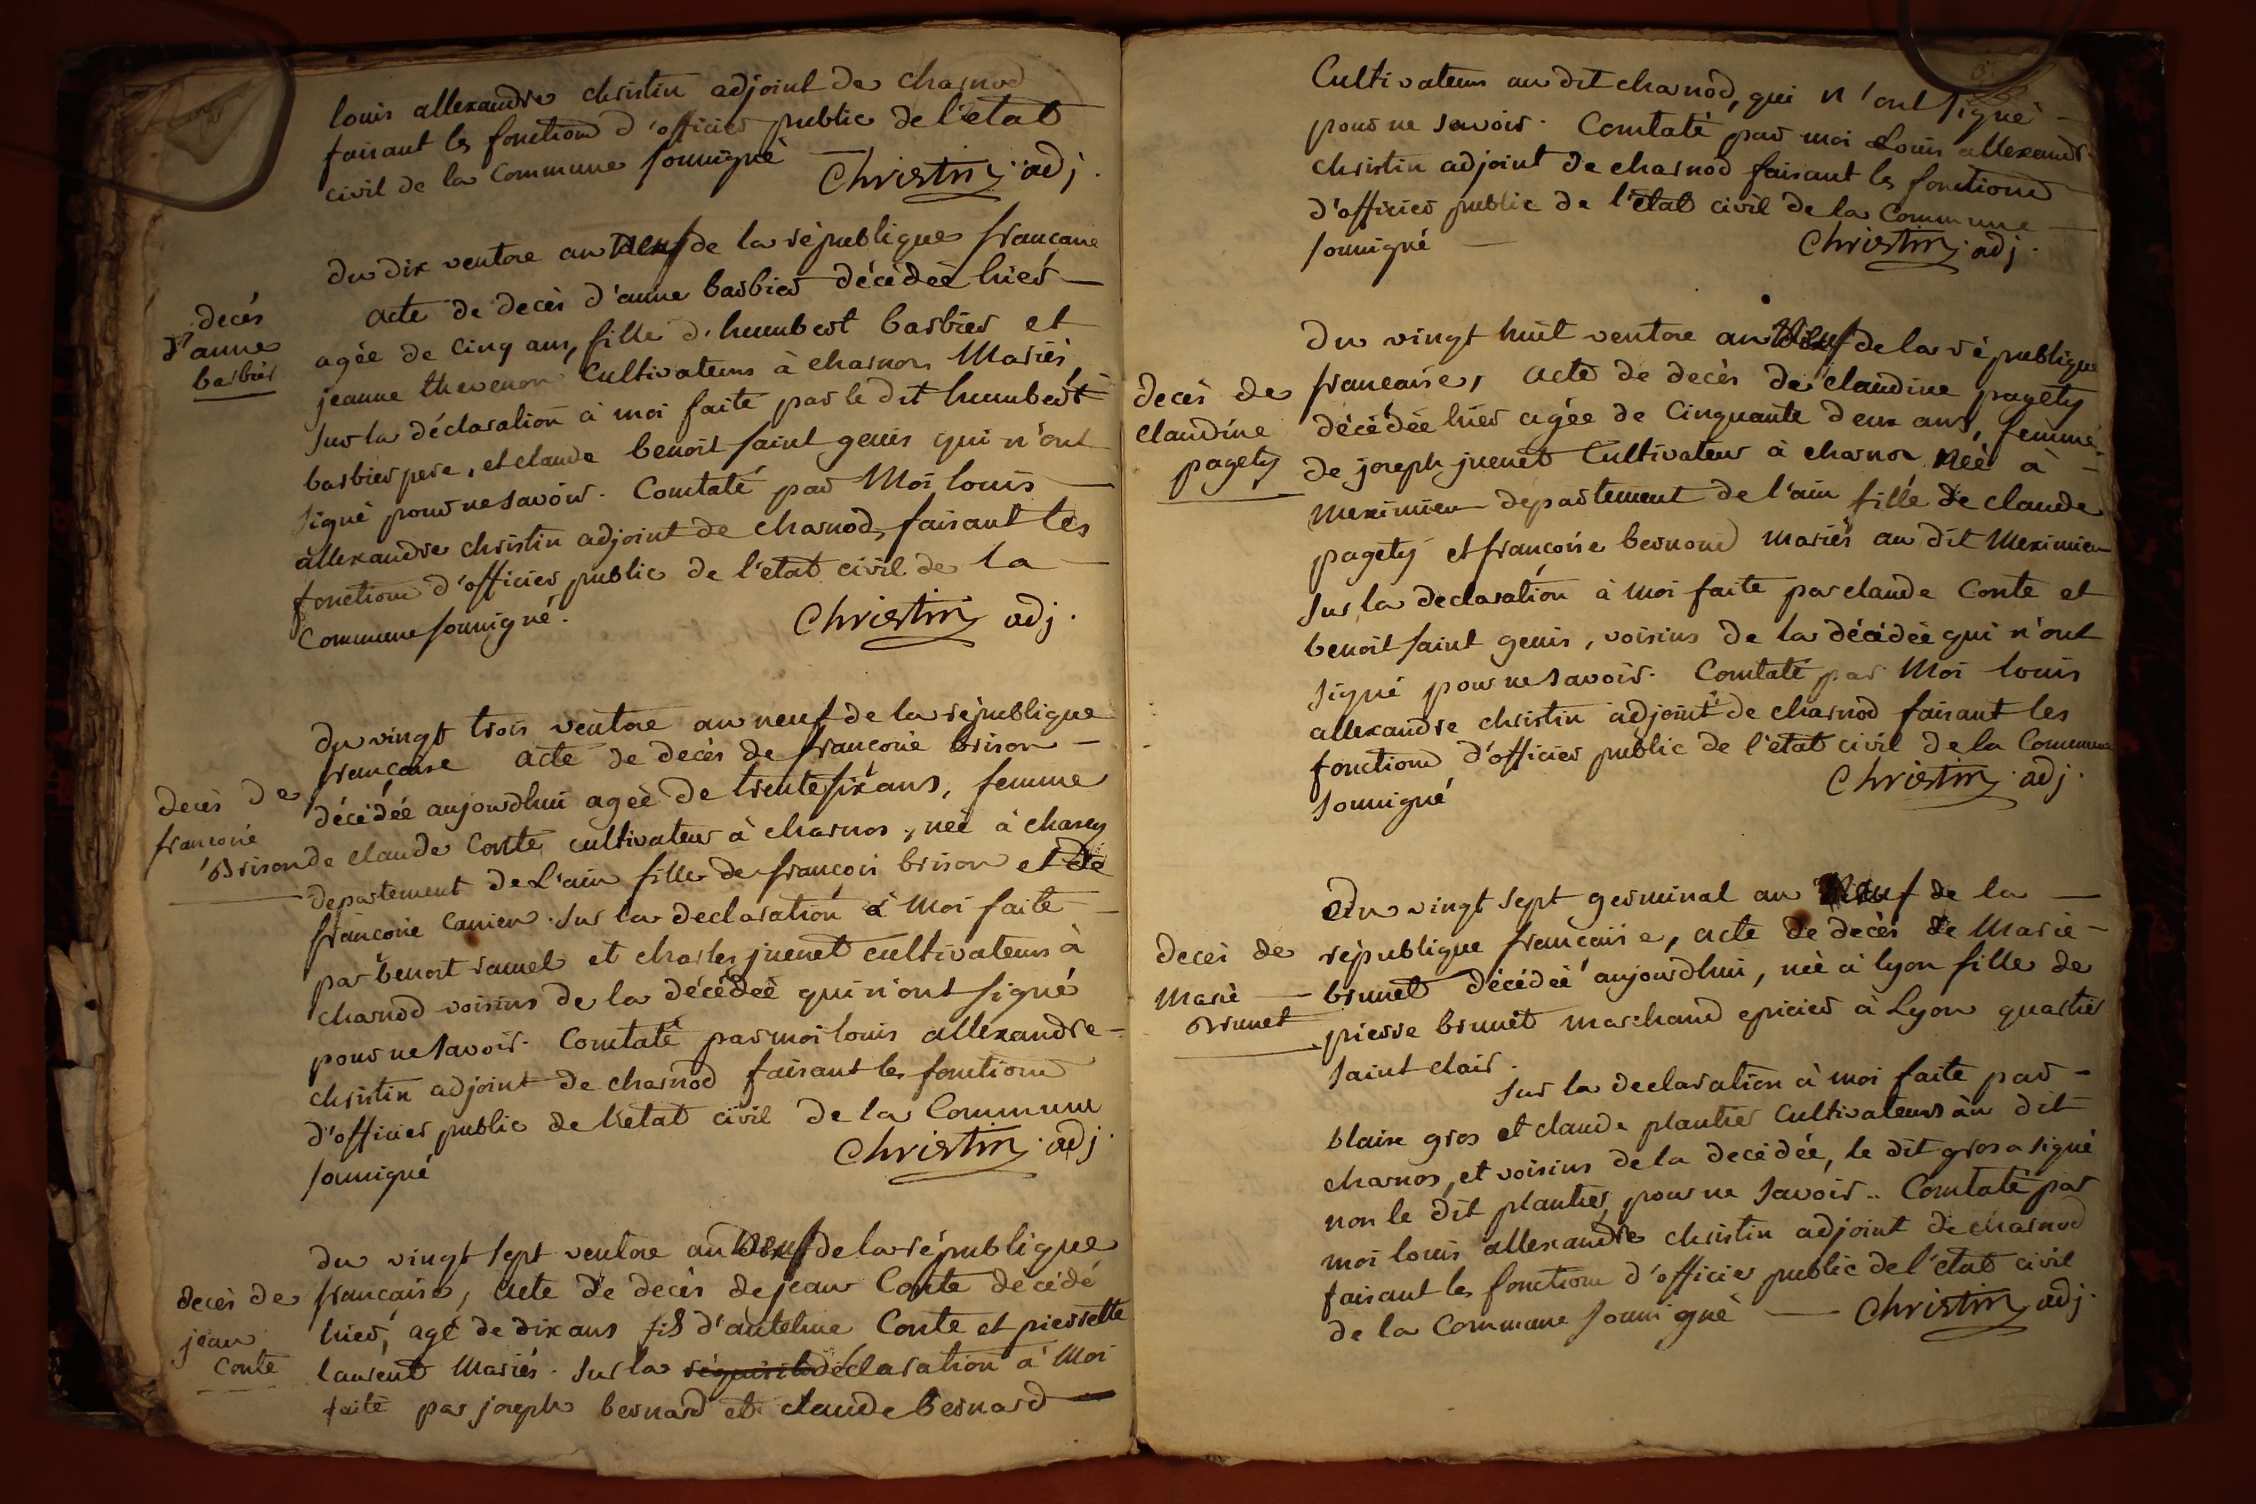 louis allexandre christin adjoint de charnod
faisant les fonctions d'officier public de l'etat
civil de la commune soussigné
Christin adj.
du dix ventose an neuf de la république francaise
decés
d'anne
barbier
acte de decès d'anne barbier décédée hier
agée de cinq ans, fille d'humbert barbier et
jeanne thevenon cultivateurs à charnos mariés,
sur la déclaration à moi faite par le dit humbert
barbier pere, et claude benoit saint genis qui n'ont
signé pour ne savoir. Constaté par Moi louis
allexandre christin adjoint de charnod, faisant les
fonctions d'officier public de l'etat civil de la
Commune soussigné.
Christin adj.
du vingt trois ventose an neuf de la république
française acte de decès de françoise brison
decès de
françoise
Brison
décédée aujourdhui agée de trente six ans, femme
de claude Conte cultivateur à charnos, née à
departement de L'ain fille de françois brison et de
françoise . sur la declaration à Moi faite
par benoit ramel et charles juenet cultivateurs à
charnod voisins de la décédée qui n'ont signé
pour ne savoir. Constaté par moi louis allexandre
christin adjoint de charnod faisant les fonctions
d'officier public de l'etat civil de la Commune
soussigné
Christin adj.
du vingt sept ventose an neuf de la république
decès de
jean
Conte
francaise, acte de decès de jean Conte décédé
hier, agé de dix ans fils d'antelme Conte et pierrette
laurent Mariés. sur la déclaration à Moi
faite par joseph bernard et claude bernard
Cultivateurs au dit charnod, qui n'ont signé
pour ne savoir. Constaté par moi Louis allexandre
christin adjoint de charnod faisant les fonctions
d'officier public de l'etat civil de la Commune
soussigné
Christin adj.
du vingt huit ventose an neuf de la république
decès de
claudine
pagety
francaise, acte de decès de claudine pagety
décédée hier agée de Cinquante deux ans, femme
de joseph juenet Cultivateur à charnos née à
meximieu departement de l'ain fille de claude
pagety et françoise bernond mariés au dit Meximieu
sur la declaration à moi faite par claude Conte et
benoit saint genis, voisins de la décédée qui n'ont
signé pour ne savoir. Constaté par Moi louis
allexandre christin adjoint de charnod faisant les
fonctions d'officier public de l'etat civil de la Commune
soussigné
Christin adj.
du vingt sept germinal an neuf de la
decès de
Marie
Brunet
république francaise, acte de decès de Marie
brunet décédée aujourdhui, née à lyon fille de
pierre brunet marchand epicier à Lyon quartier
saint clair.
sur la declaration à moi faite par
blaise gros et claude plantier Cultivateurs au dit
charnos, et voisins de la decédée, le dit gros a signé
non le dit plantier pour ne savoir.. Constaté par
moi louis allexandre christin adjoint de charnod
faisant les fonctions d'officier public de l'etat civil
de la Commune soussigné Christin adj.